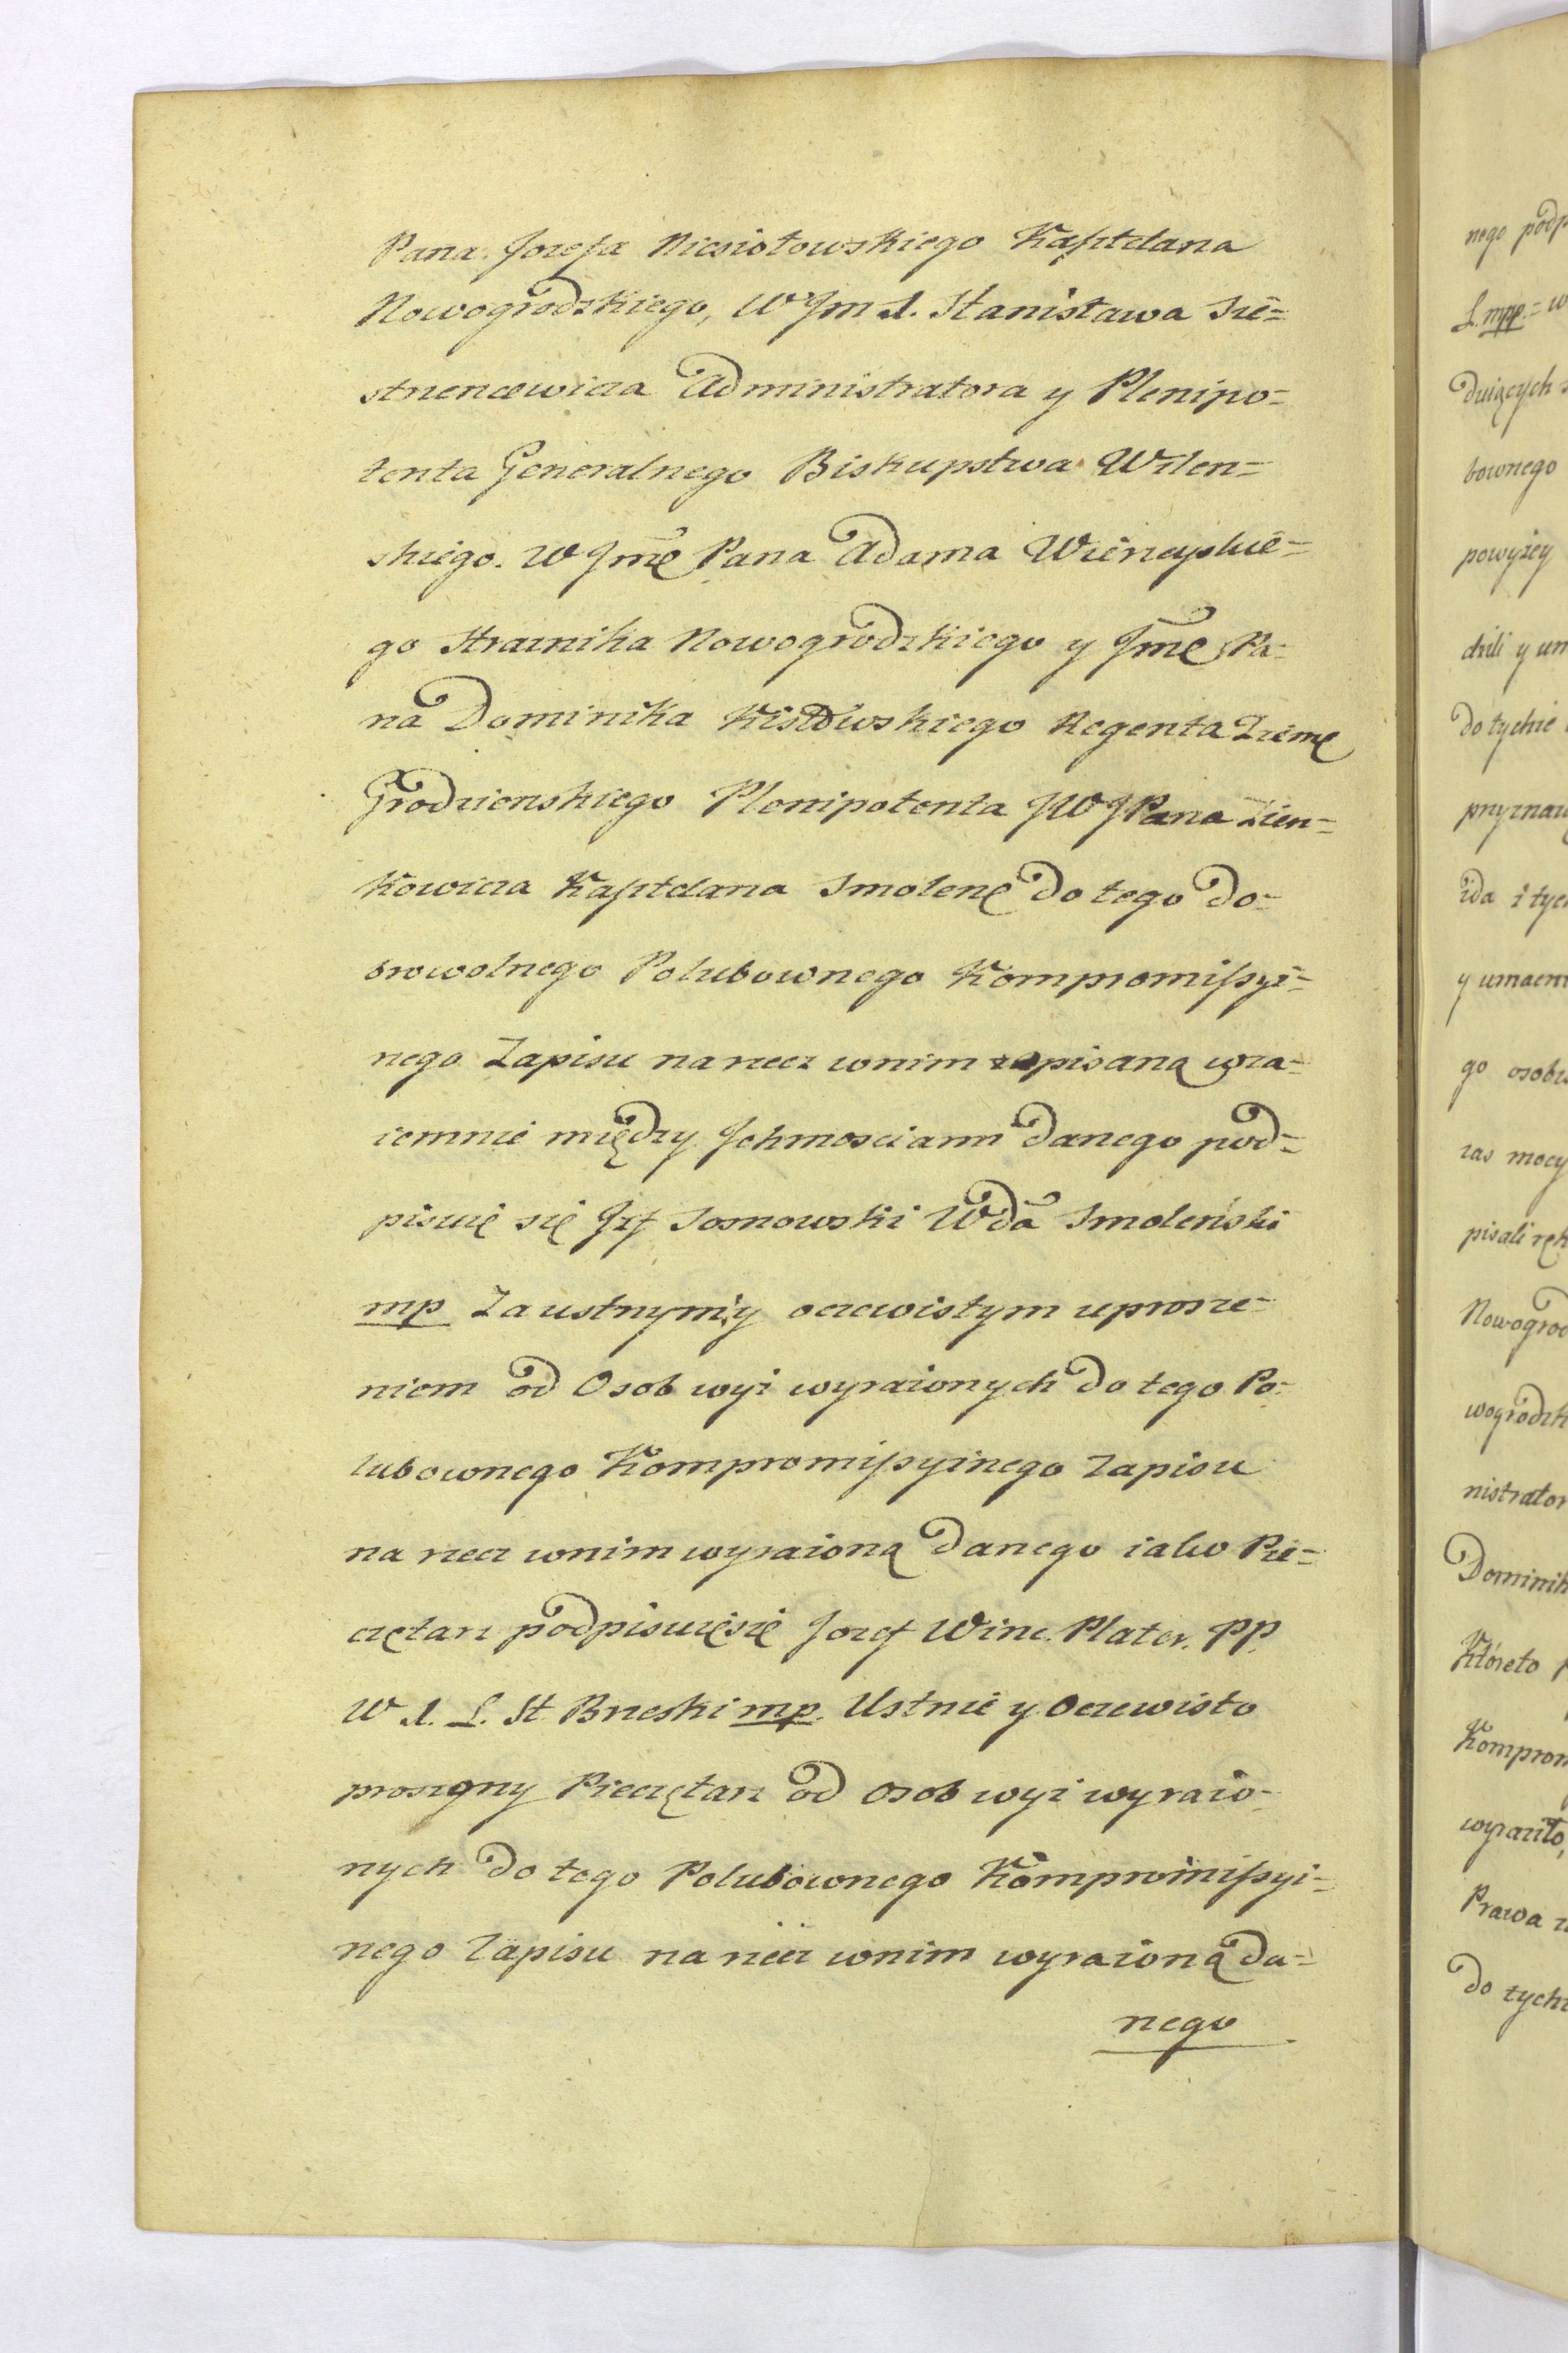 Pana Jozefa Niesiołowskiego Kasztelana
Nowogrodzkiego, W Jm X. Stanisława Sie=
strzencewicza Administratora y Plenipo=
tenta Generalnego Biskupstwa Wilen=
skiego. W Jmę Pana Adama
go Strażnika Nowogrodzkiego y Jmę Pa=
na Dominika Kisłowskiego Regenta Ziemę
Grodzienskiego Plenipotenta JW JPana Zien=
kowicza Kasztelana Smolenę do tego do=
browolnego Polubownego Kompromissyi=
nego Zapisu na rzecz wnim opisaną wza=
iemnie między Jchmosciami danego pod=
pisuię się Jzf Sosnowski Wda Smoleński
mp Za ustnym y oczewistym uprosze=
niem od Osob wyż wyrażonych do tego Po=
lubownego Kompromissyinego Zapisu
na rzecz wnim wyrażoną danego iako Pie=
czętarz podpisuięsię Jozef Winc. Plater. PP.
W X. L. St Brzeski mp. Ustnie y Oczewisto
proszony Pieczętarz od Osob wyż wyrażo=
nych do tego Polubownego Kompromissyi=
nego Zapisu na rzecz wnim wyrażoną da=
nego
nego podp
L. mpp. = w
duiących
bownego
powyżey
dzili y um
do tychże
przyznaią
żda z tych
y umacni
go osobi
zas mocy
pisali ręk
Nowogrod
wogrodzk
nistrator
Dominik
Któreto
Komprom
wyraziło,
Prawa
do tychż